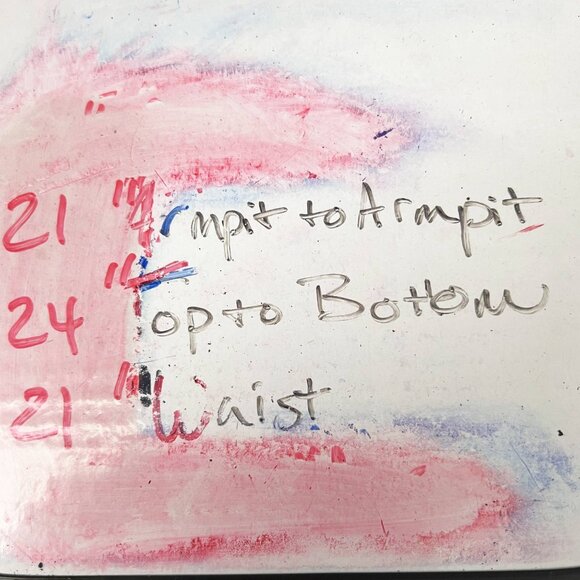 21 " Armpit to Armpit
24 " Top to Bottom
21 " Waist